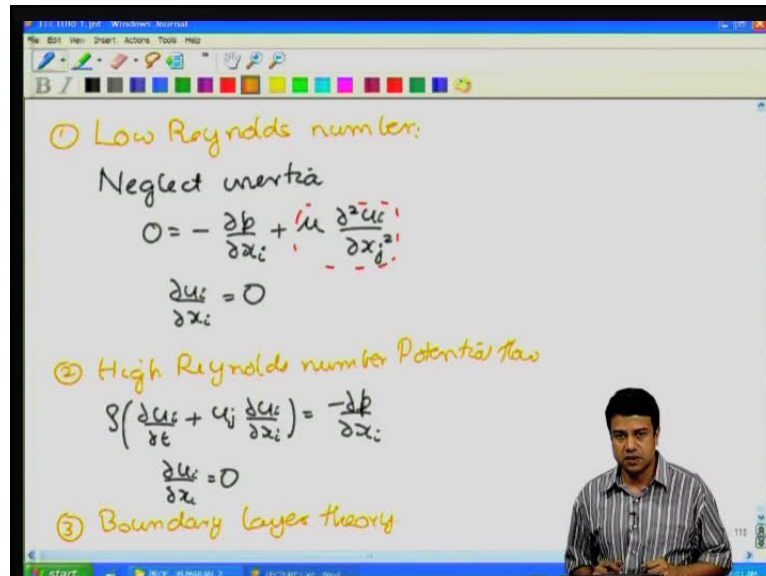 LECTURE 1.jnt - Windows Journal
File Edit View Insert Actions Tools Help
B I
① Low Reynolds number:
Neglect inertia
0 = - ∂p/∂xᵢ + μ ∂²uᵢ/∂xⱼ²
∂uᵢ/∂xᵢ = 0
② High Reynolds number Potential flow
ρ(∂uᵢ/∂t + uⱼ ∂uᵢ/∂xᵢ) = -∂p/∂xᵢ
∂uᵢ/∂xᵢ = 0
③ Boundary layer theory
start